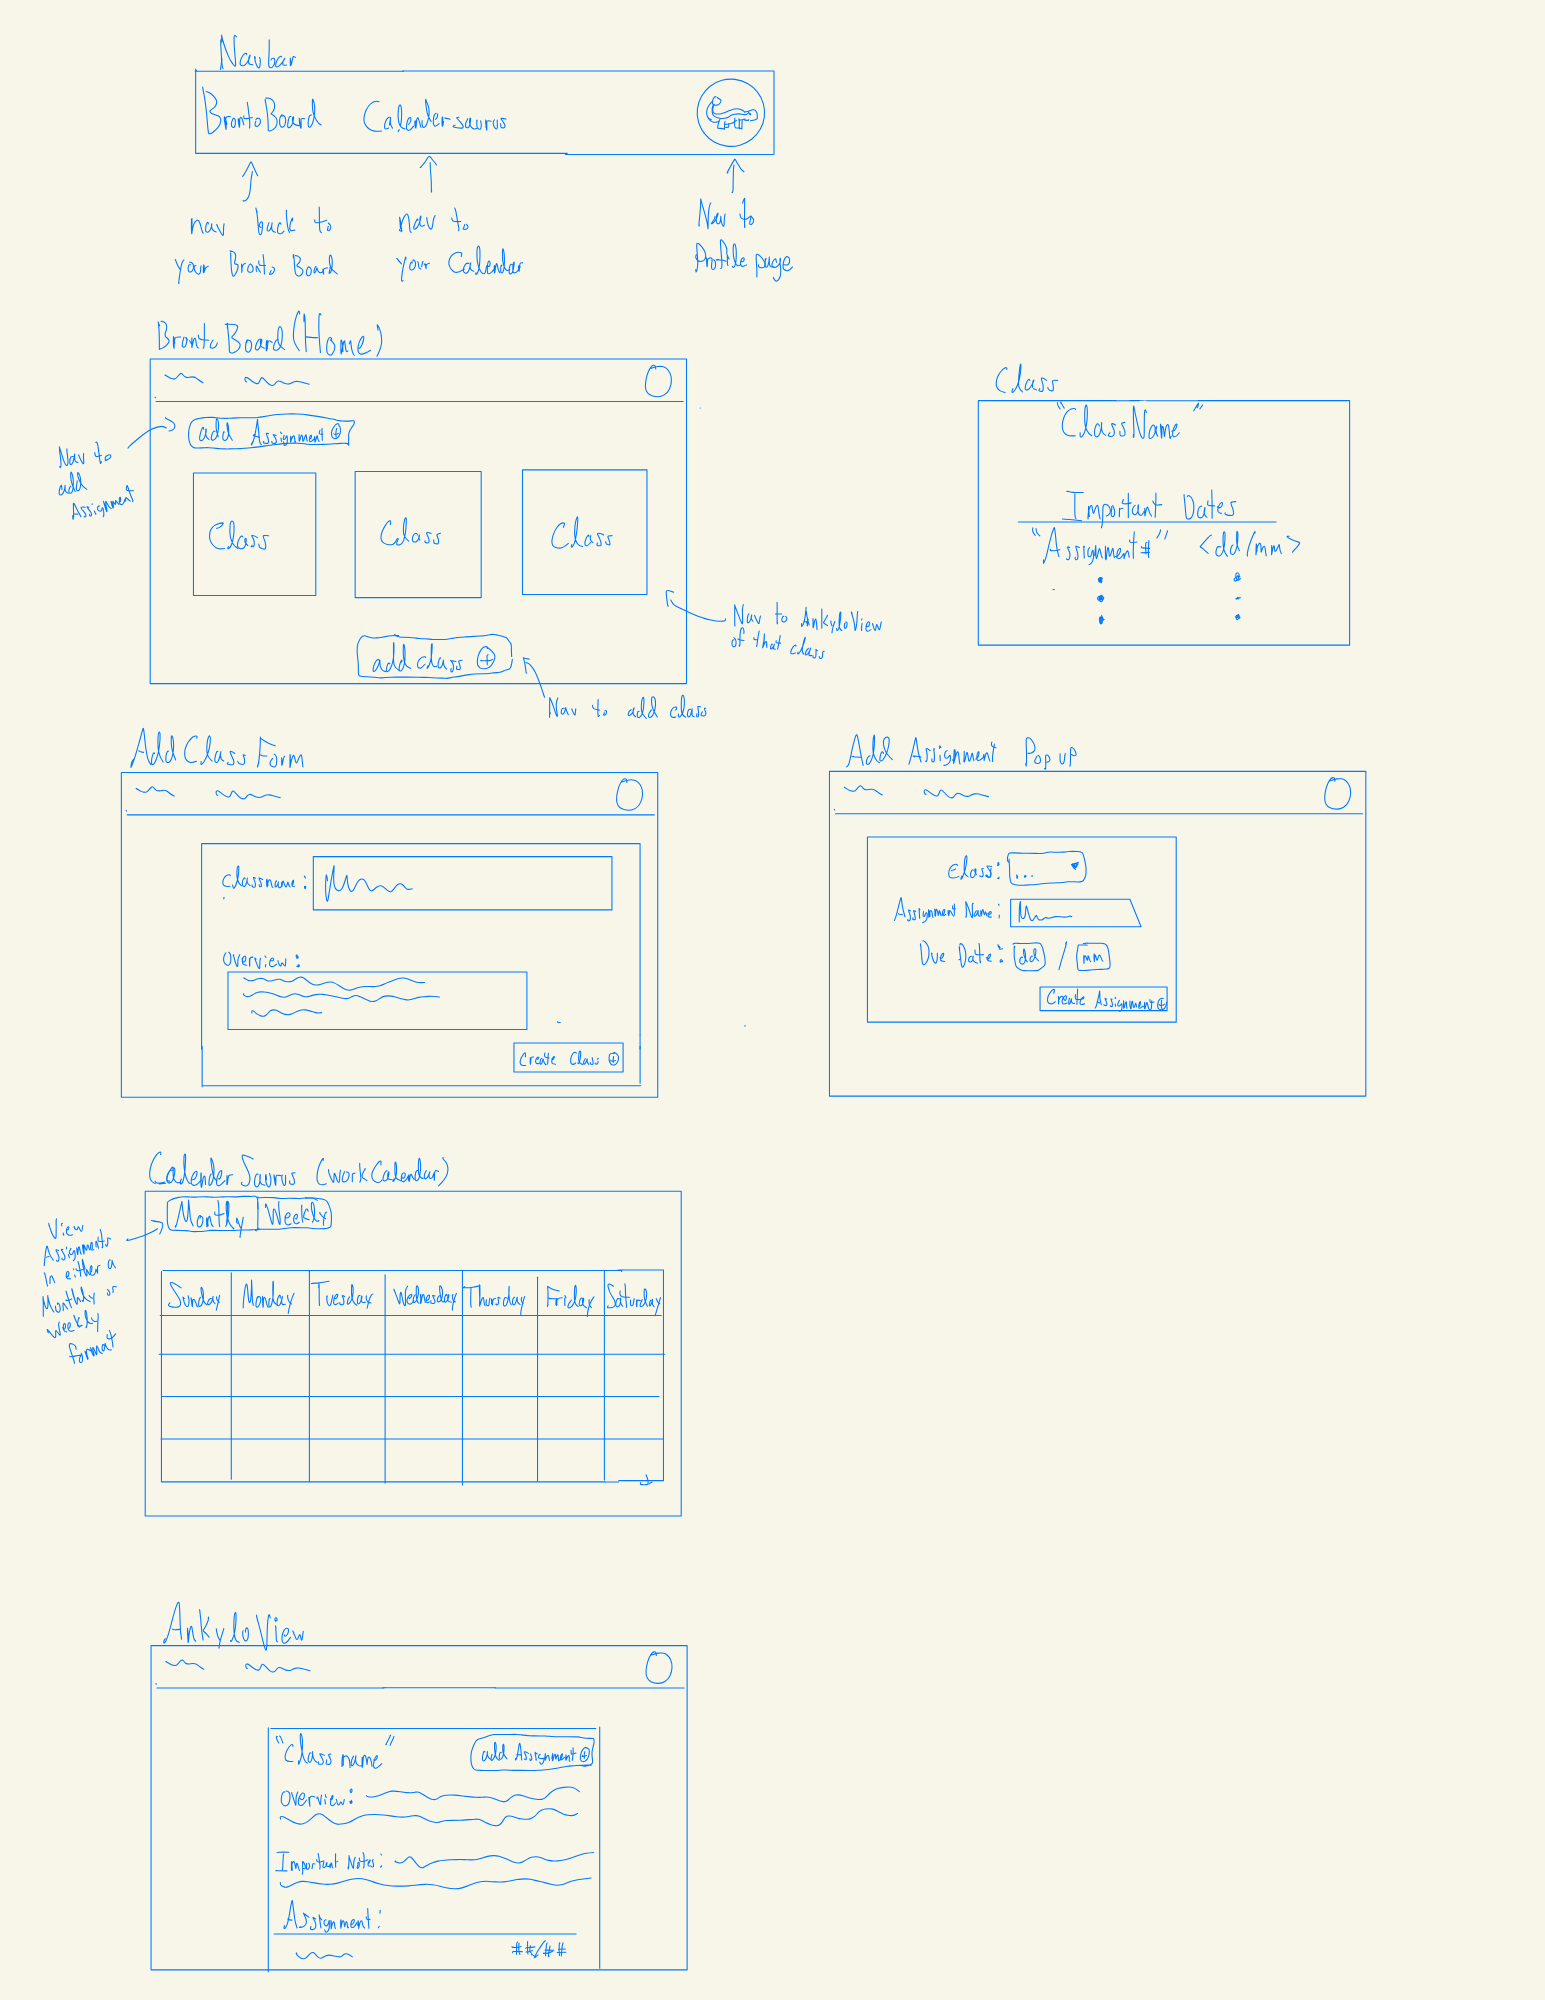 Navbar
BrontoBoard Calendersaurus
nav back to
your Bronto Board
nav to
your Calendar
Nav to
Profile page
Bronto Board (Home)
add Assignment +
Nav to
add
Assignment
Class Class Class
Nav to AnkyloView
of that class
add class +
Nav to add class
Class
"ClassName"
Important Dates
"Assignment#" <dd/mm>
Add Class Form
Classname:
Overview:
Create Class +
Add Assignment Popup
Class: ...
Assignment Name:
Due Date: dd / mm
Create Assignment +
Calender Saurus (WorkCalendar)
Montly Weekly
View
Assignments
In either a
Monthly or
weekly
format
Sunday Monday Tuesday Wednesday Thursday Friday Saturday
AnKylo View
"Class name" add Assignment +
Overview:
Important Notes:
Assignment:
##/##